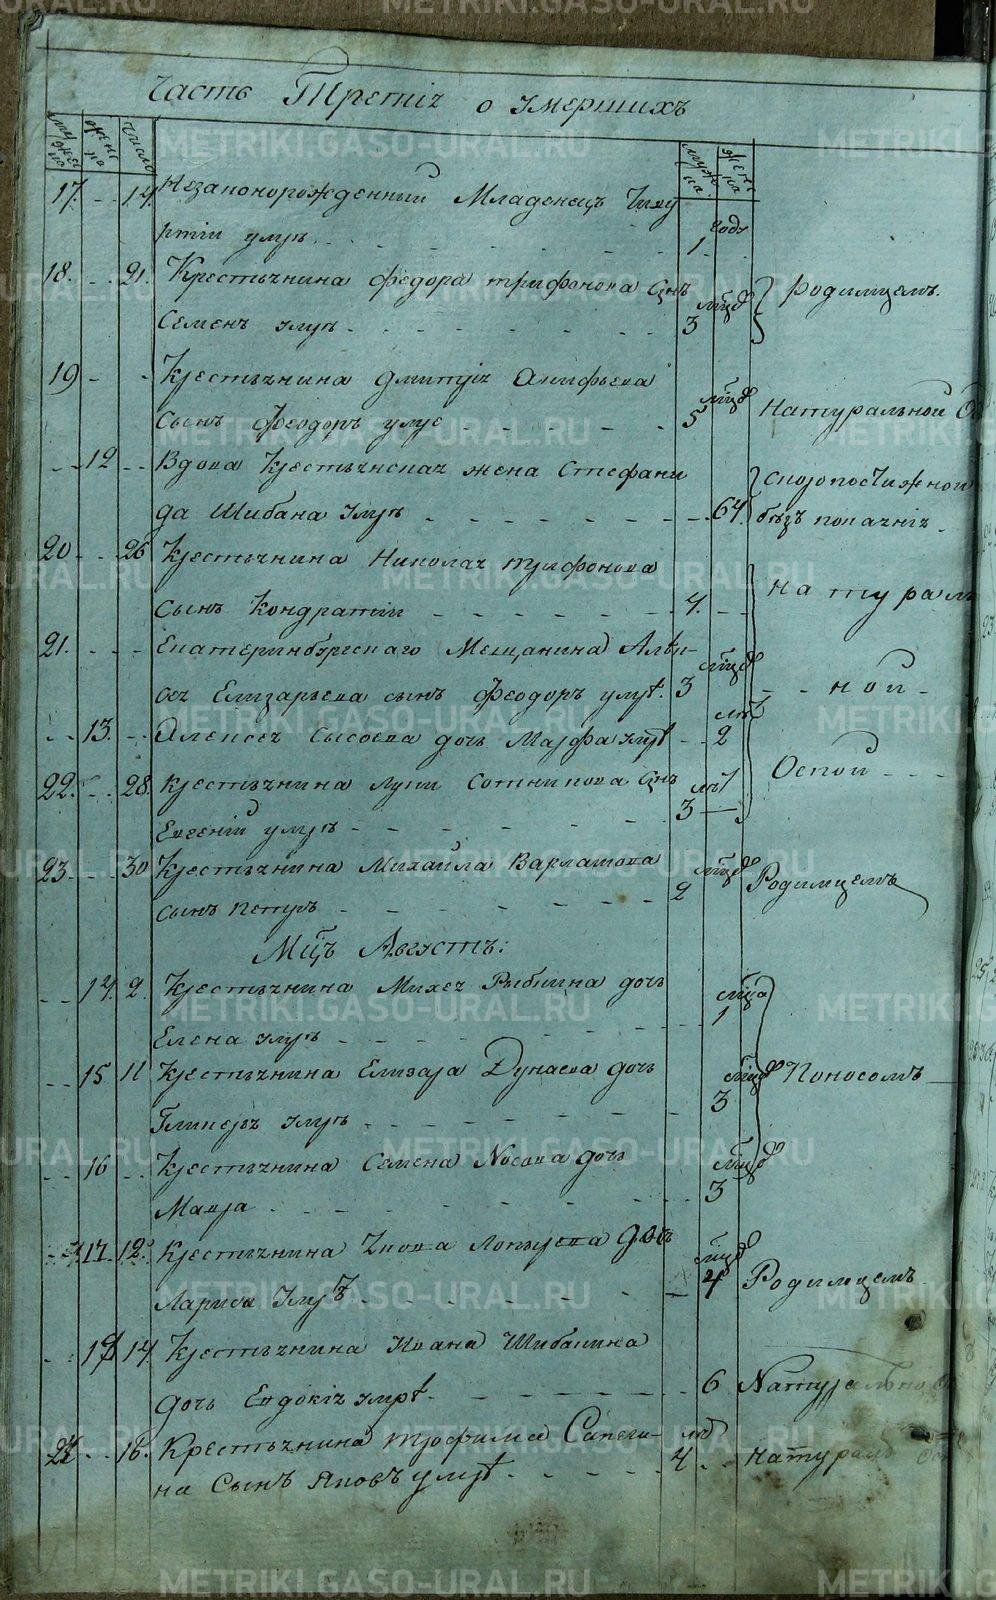 Часть Третія о умершихъ
мужеска женска число мужска женска
17. 14 Незаконорожденный Младенецъ
умръ 1. годъ
18. 21. Крестьянина Федора Трифонова сынъ
Семенъ умръ 3 мцъ Родимцемъ.
19 Крестьянина Дмитрія Анифьева
сынъ Феодоръ умре 5 мцъ Натуральной
12 Вдова Крестьянская жена Стефани
да Шибана умръ 64. Скоропостижной безъ покаянія
20 26 Крестьянина Николая Трифонова
сынъ Кондратій 4. Натураль
21. Екатеринбургскаго Мещанина
Елизарьева сынъ Феодоръ умре. 3 мцъ ной
13. Алексея Сысоева дочь Марфа умре 2
22. 28. Крестьянина Луки Сотникова сынъ Оспой
Евгеній умръ 3
23. 30 Крестьянина Михайла Варламова
сынъ Петръ 2 мцъ Родимцемъ
Мцъ Августъ:
14. 2. Крестьянина Михея Рыбкина дочь
Елена умръ 1 мца
15 11 Крестьянина Елизара Дунаева дочь Поносомъ
Гликерья умръ 3
16 Крестьянина Семена Носова дочь
Мавра 3
17 12. Крестьянина Якова Лопырева дочь
Лариса умръ 4 Родимцемъ
18 14. Крестьянина Иоана Шибакина
дочь Евдокія умре. 6 Натурально
24 16. Крестьянина Трофима Сапеги-
на Сынъ Яковъ умре 4 Натураль
METRIKI.GASO-URAL.RU